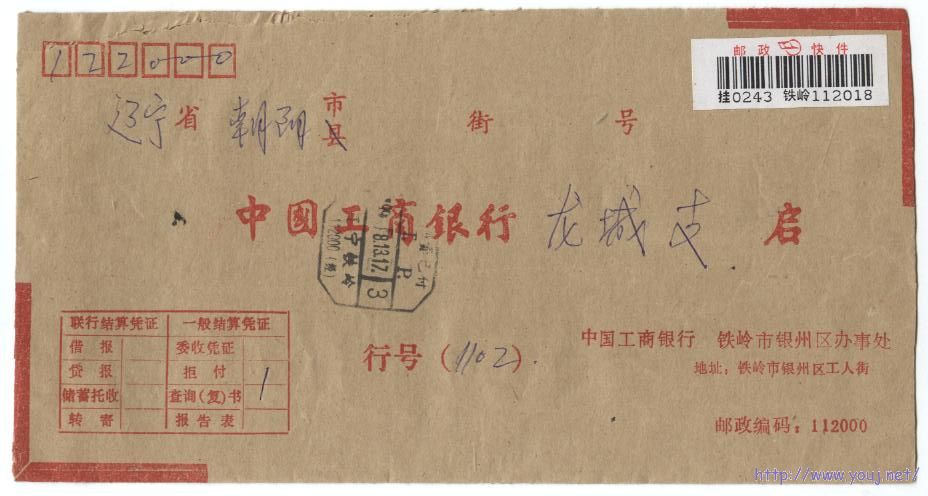 122000
邮政 快件
挂0243 铁岭112018
辽宁省 朝阳 市县 街 号
中国工商银行 龙城支 启
8.13.17
3
P.
112000
联行结算凭证 一般结算凭证
借报 委收凭证
贷报 拒付 1
储蓄托收 查询(复)书
转寄 报告表
行号(1102).
中国工商银行 铁岭市银州区办事处
地址：铁岭市银州区工人街
邮政编码：112000
http://www.youj.net/